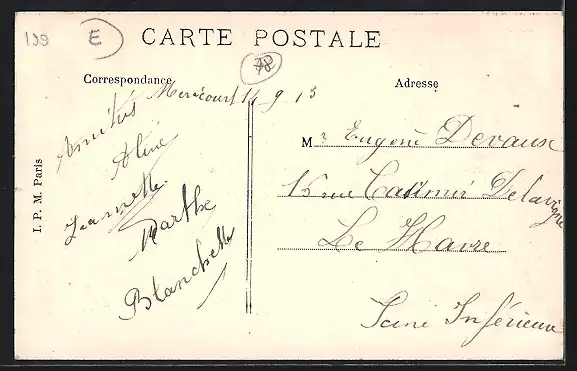 199 E
CARTE POSTALE
Correspondance
Adresse
Méricourt 14-9-13
Amitiés
Aline
Jeannette.
Marthe
Blanchette
Mr Eugène Devaux
15 rue Casimir Delavigne
Le Havre
Seine Inférieure
I. P. M. Paris